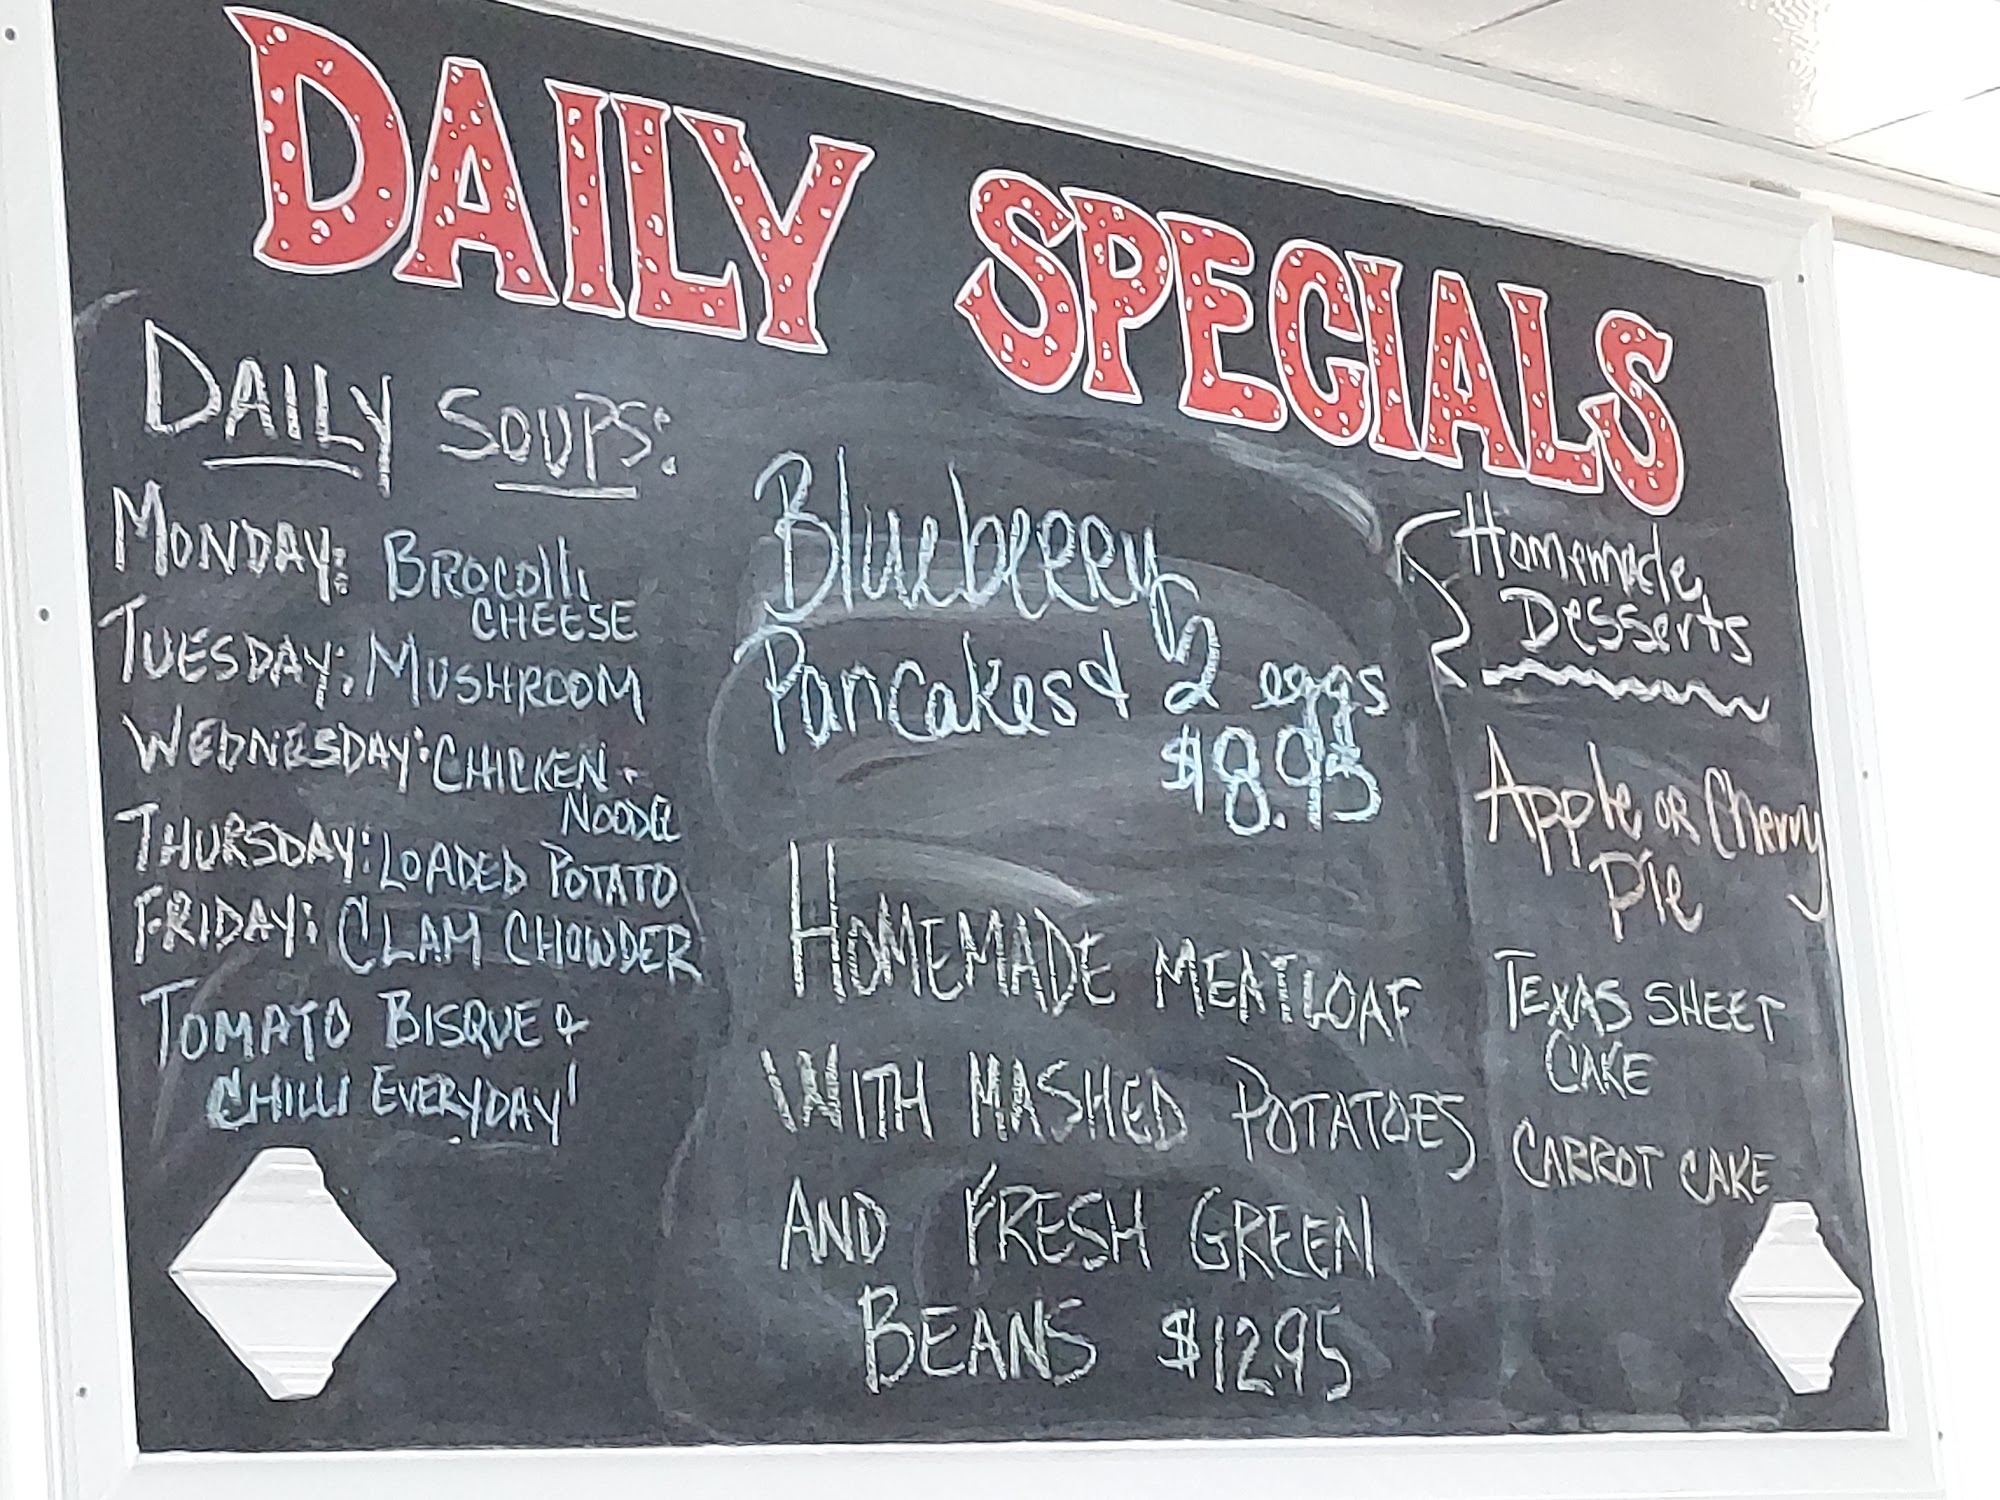 DAILY SPECIALS
DAILY SOUPS:
MONDAY: BROCOLLI
CHEESE
TUESDAY: MUSHROOM
WEDNESDAY: CHICKEN
NOODLE
THURSDAY: LOADED POTATO
FRIDAY: CLAM CHOWDER
TOMATO BISQUE &
CHILLI EVERYDAY!
Blueberry
Pancakes & 2 eggs
$8.95
HOMEMADE MEATLOAF
WITH MASHED POTATOES
AND FRESH GREEN
BEANS $12.95
Homemade
Desserts
Apple OR Cherry
Pie
TEXAS SHEET
CAKE
CARROT CAKE